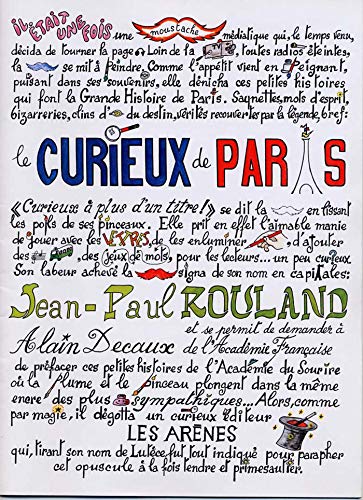 IL ÉTAIT UNE FOIS une moustache médiatique qui, le temps venu,
décida de tourner la page. Loin de la toutes radios éteintes,
la se mit à peindre. Comme l'appétit vient en Peignant,
puisant dans ses souvenirs, elle dénicha ces petites histoires
qui font la Grande Histoire de Paris. Saynettes, mots d'esprit,
bizarreries, clins d' du destin, vérités recouvertes par la légende, bref:
le CURIEUX de PARIS
«Curieuse à plus d'un titre!» se dit la en tissant
les poils de ses pinceaux. Elle prit en effet l'aimable manie
de jouer avec les de les enluminer d'ajouter
des des jeux de mots, pour les lecteurs... un peu curieux.
Son labeur achevé la signa de son nom en capitales:
Jean-Paul ROULAND
et se permit de demander à
Alain Decaux de l'Académie Française
de préfacer ces petites histoires de l'Académie du Sourire
où la plume et le pinceau plongent dans la même
encre des plus sympathiques... Alors, comme
par magie, il dégotta un curieux éditeur
LES ARÈNES
qui, tirant son nom de Lutèce, fut tout indiqué pour parapher
cet opuscule à la fois tendre et primesautier.